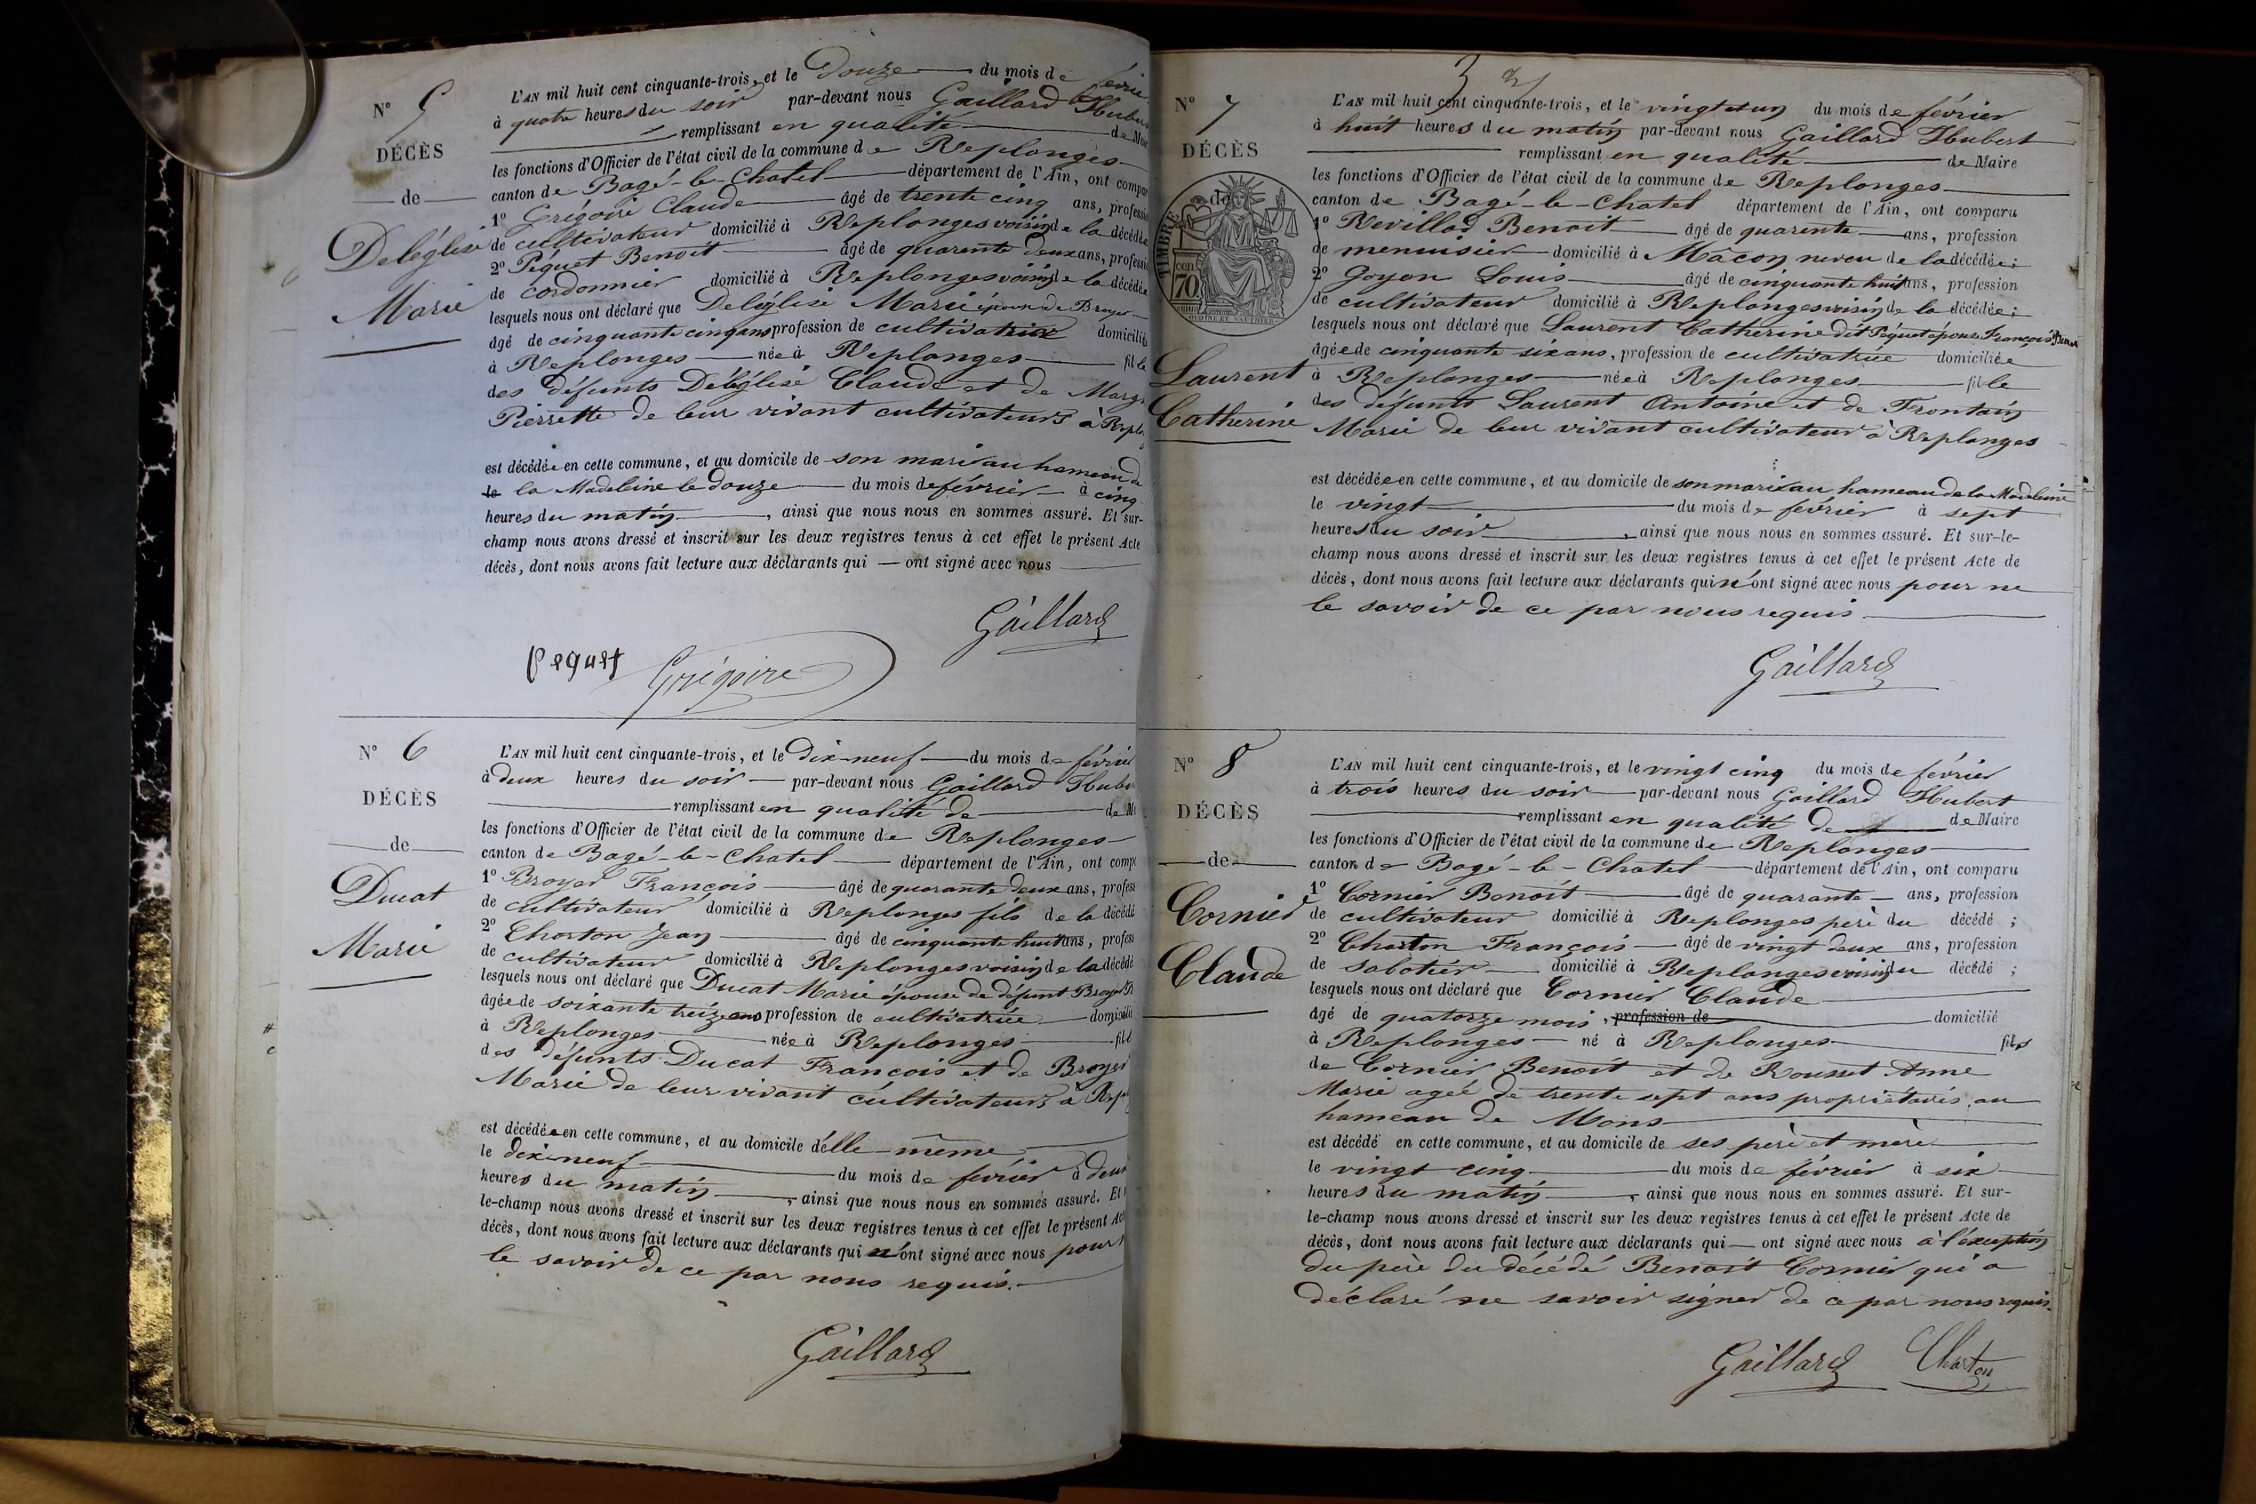 N° 5
DÉCÈS
de
Deléglise
Marie
L'AN mil huit cent cinquante-trois, et le Douze du mois de févrie
à quatre heures du soir par-devant nous Gaillard Huber
remplissant en qualité de Mai
les fonctions d'Officier de l'état civil de la commune de Replonges
canton de Bagé-le-Chatel département de l'Ain, ont compar
1° Grégoire Claude âgé de trente cinq ans, professio
de cultivateur domicilié à Replonges voisin de la décédée
2° Péquet Benoit âgé de quarente deux ans, professio
de cordonnier domicilié à Replonges voisin de la décédée
lesquels nous ont déclaré que Deléglise Marie épouse de Broyer
âgé de cinquante cinq ans profession de cultivatrice domicilié
à Replonges née à Replonges fille
des défunts Deléglise Claude et de Marg
Pierrette de leur vivant cultivateurs à Replon
est décédée en cette commune, et au domicile de son mari au hameau de
la Madeleine le douze du mois de février à cinq
heures du matin, ainsi que nous nous en sommes assuré. Et sur-
champ nous avons dressé et inscrit sur les deux registres tenus à cet effet le présent Acte
décès, dont nous avons fait lecture aux déclarants qui — ont signé avec nous
Gaillard
Pequet Grégoire
N° 6
DÉCÈS
de
Ducat
Marie
L'AN mil huit cent cinquante-trois, et le dix-neuf du mois de février
à deux heures du soir par-devant nous Gaillard Hube
remplissant en qualité de de M
les fonctions d'Officier de l'état civil de la commune de Replonges
canton de Bagé-le-Chatel département de l'Ain, ont compa
1° Broyer François âgé de quarante deux ans, profess
de cultivateur domicilié à Replonges fils de la décédé
2° Charton Jean âgé de cinquante huit ans, profess
de cultivateur domicilié à Replonges voisin de la décédé
lesquels nous ont déclaré que Ducat Marie épouse de défunt Broyer
âgée de soixante treize ans profession de cultivatrice domicilié
à Replonges née à Replonges fil
des défunts Ducat François et de Broyer
Marie de leur vivant cultivateurs à Rep
est décédée en cette commune, et au domicile d'elle-même
le dix-neuf du mois de février à deux
heures du matin, ainsi que nous nous en sommes assuré. Et
le-champ nous avons dressé et inscrit sur les deux registres tenus à cet effet le présent Act
décès, dont nous avons fait lecture aux déclarants qui n'ont signé avec nous pour
le savoir de ce par nous requis.
Gaillard
3
N° 7
DÉCÈS
de
TIMBRE
cen
70
Laurent
Catherine
L'AN mil huit cent cinquante-trois, et le vingt et un du mois de février
à huit heures du matin par-devant nous Gaillard Hubert
remplissant en qualité de Maire
les fonctions d'Officier de l'état civil de la commune de Replonges
canton de Bagé-le-Chatel département de l'Ain, ont comparu
1° Revillod Benoit âgé de quarente ans, profession
de menuisier domicilié à Mâcon neveu de la décédée;
2° Goyon Louis âgé de cinquante huit ans, profession
de cultivateur domicilié à Replonges voisin de la décédée;
lesquels nous ont déclaré que Laurent Catherine dit Péquet épouse François
âgée de cinquante six ans, profession de cultivatrice domiciliée
à Replonges née à Replonges fille
des défunts Laurent Antoine et de Frontain
Marie de leur vivant cultivateur à Replonges
est décédée en cette commune, et au domicile de son mari au hameau de la Madeleine
le vingt du mois de février à sept
heures du soir, ainsi que nous nous en sommes assuré. Et sur-le-
champ nous avons dressé et inscrit sur les deux registres tenus à cet effet le présent Acte de
décès, dont nous avons fait lecture aux déclarants qui n'ont signé avec nous pour ne
le savoir de ce par nous requis
Gaillard
N° 8
DÉCÈS
de
Cornier
Claude
L'AN mil huit cent cinquante-trois, et le vingt cinq du mois de février
à trois heures du soir par-devant nous Gaillard Hubert
remplissant en qualité de de Maire
les fonctions d'Officier de l'état civil de la commune de Replonges
canton de Bagé-le-Chatel département de l'Ain, ont comparu
1° Cornier Benoit âgé de quarante ans, profession
de cultivateur domicilié à Replonges père du décédé;
2° Charton François âgé de vingt deux ans, profession
de sabotier domicilié à Replonges voisin du décédé;
lesquels nous ont déclaré que Cornier Claude
âgé de quatorze mois, profession de domicilié
à Replonges né à Replonges fils
de Cornier Benoit et de Rousset Anne
Marie agée de trente sept ans propriétaires au
hameau de Mons
est décédé en cette commune, et au domicile de ses père et mère
le vingt cinq du mois de février à six
heures du matin, ainsi que nous nous en sommes assuré. Et sur-
le-champ nous avons dressé et inscrit sur les deux registres tenus à cet effet le présent Acte de
décès, dont nous avons fait lecture aux déclarants qui — ont signé avec nous à l'exception
du père du décédé Benoit Cornier qui a
déclaré ne savoir signer de ce par nous requis.
Gaillard Charton